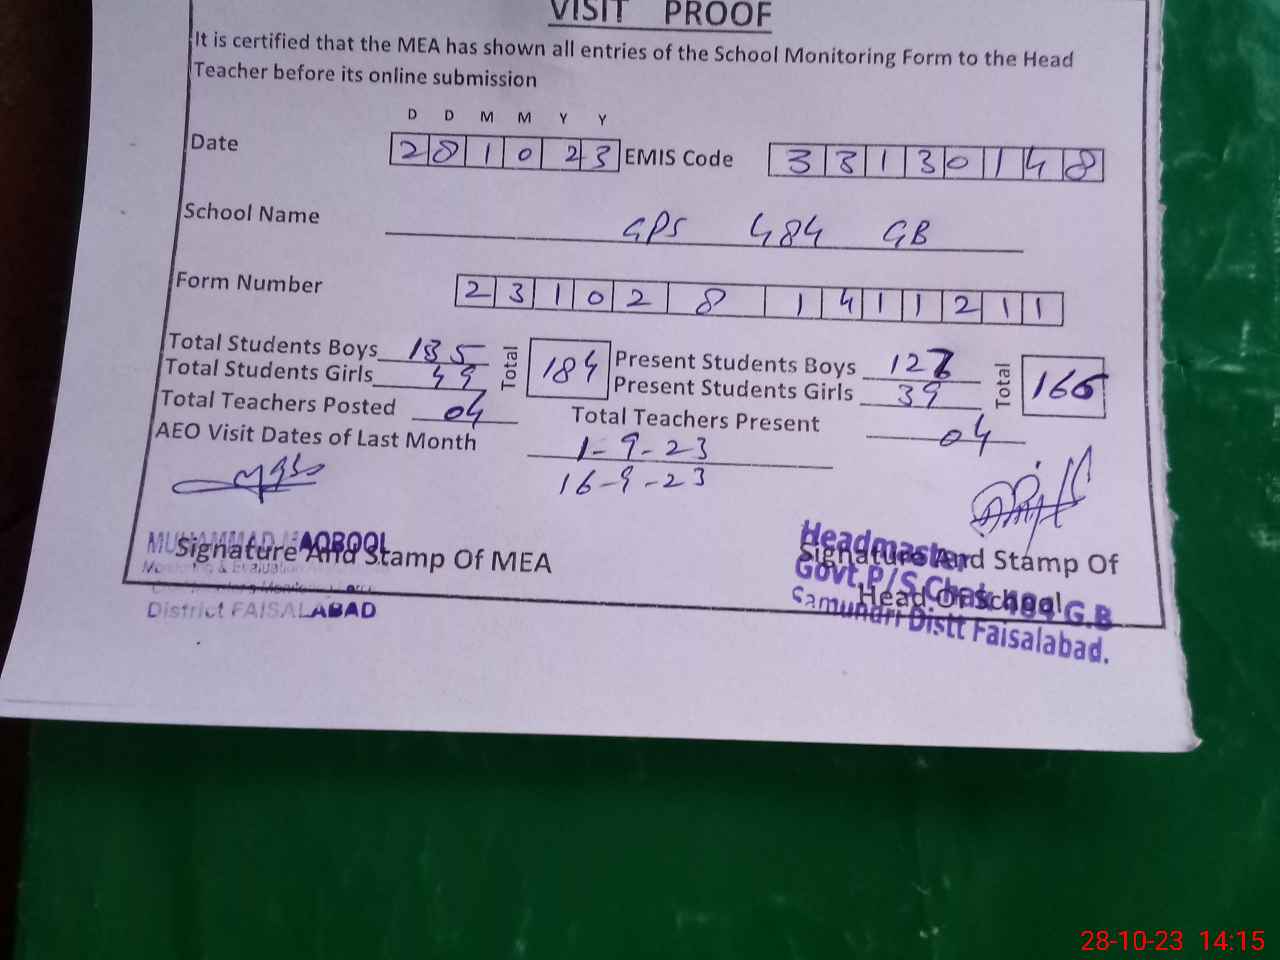 VISIT PROOF
It is certified that the MEA has shown all entries of the School Monitoring Form to the Head
Teacher before its online submission
D D M M Y Y
Date 2 8 1 0 2 3 EMIS Code 3 3 1 3 0 1 4 8
School Name GPS 484 GB
Form Number 2 3 1 0 2 8 1 4 1 1 2 1 1
Total Students Boys 135 Total 184 Present Students Boys 127 Total 166
Total Students Girls 49 Present Students Girls 39
Total Teachers Posted 04 Total Teachers Present 04
AEO Visit Dates of Last Month 1-9-23
16-9-23
MUHAMMAD MAQBOOL
Signature And Stamp Of MEA
Monitoring & Evaluation
District FAISALABAD
Headmaster
Signature And Stamp Of
Govt.P/S.Chak 484 G.B
Head Of School
Samundri Distt Faisalabad.
28-10-23 14:15